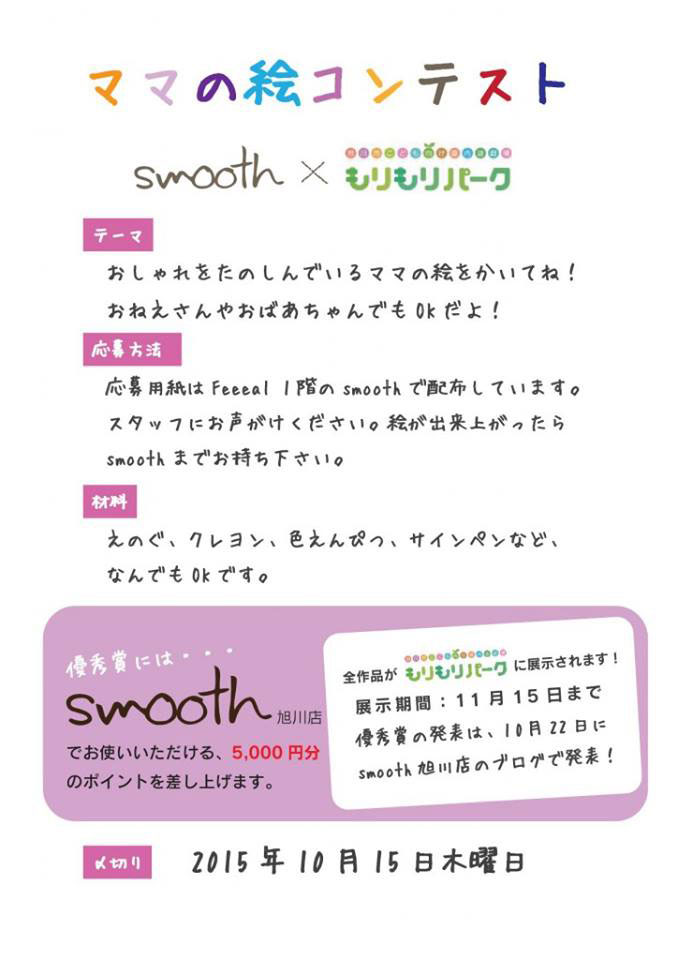 ママの絵コンテスト
smooth × もりもりパーク
テーマ
おしゃれをたのしんでいるママの絵をかいてね！
おねえさんやおばあちゃんでもOKだよ！
応募方法
応募用紙はFeeeal 1階のsmoothで配布しています。
スタッフにお声がけください。絵が出来上がったら
smoothまでお持ち下さい。
材料
えのぐ、クレヨン、色えんぴつ、サインペンなど、
なんでもOKです。
優秀賞には・・・
smooth 旭川店
でお使いいただける、5,000円分
のポイントを差し上げます。
全作品が もりもりパーク に展示されます！
展示期間：11月15日まで
優秀賞の発表は、10月22日に
smooth旭川店のブログで発表！
〆切り 2015年10月15日木曜日